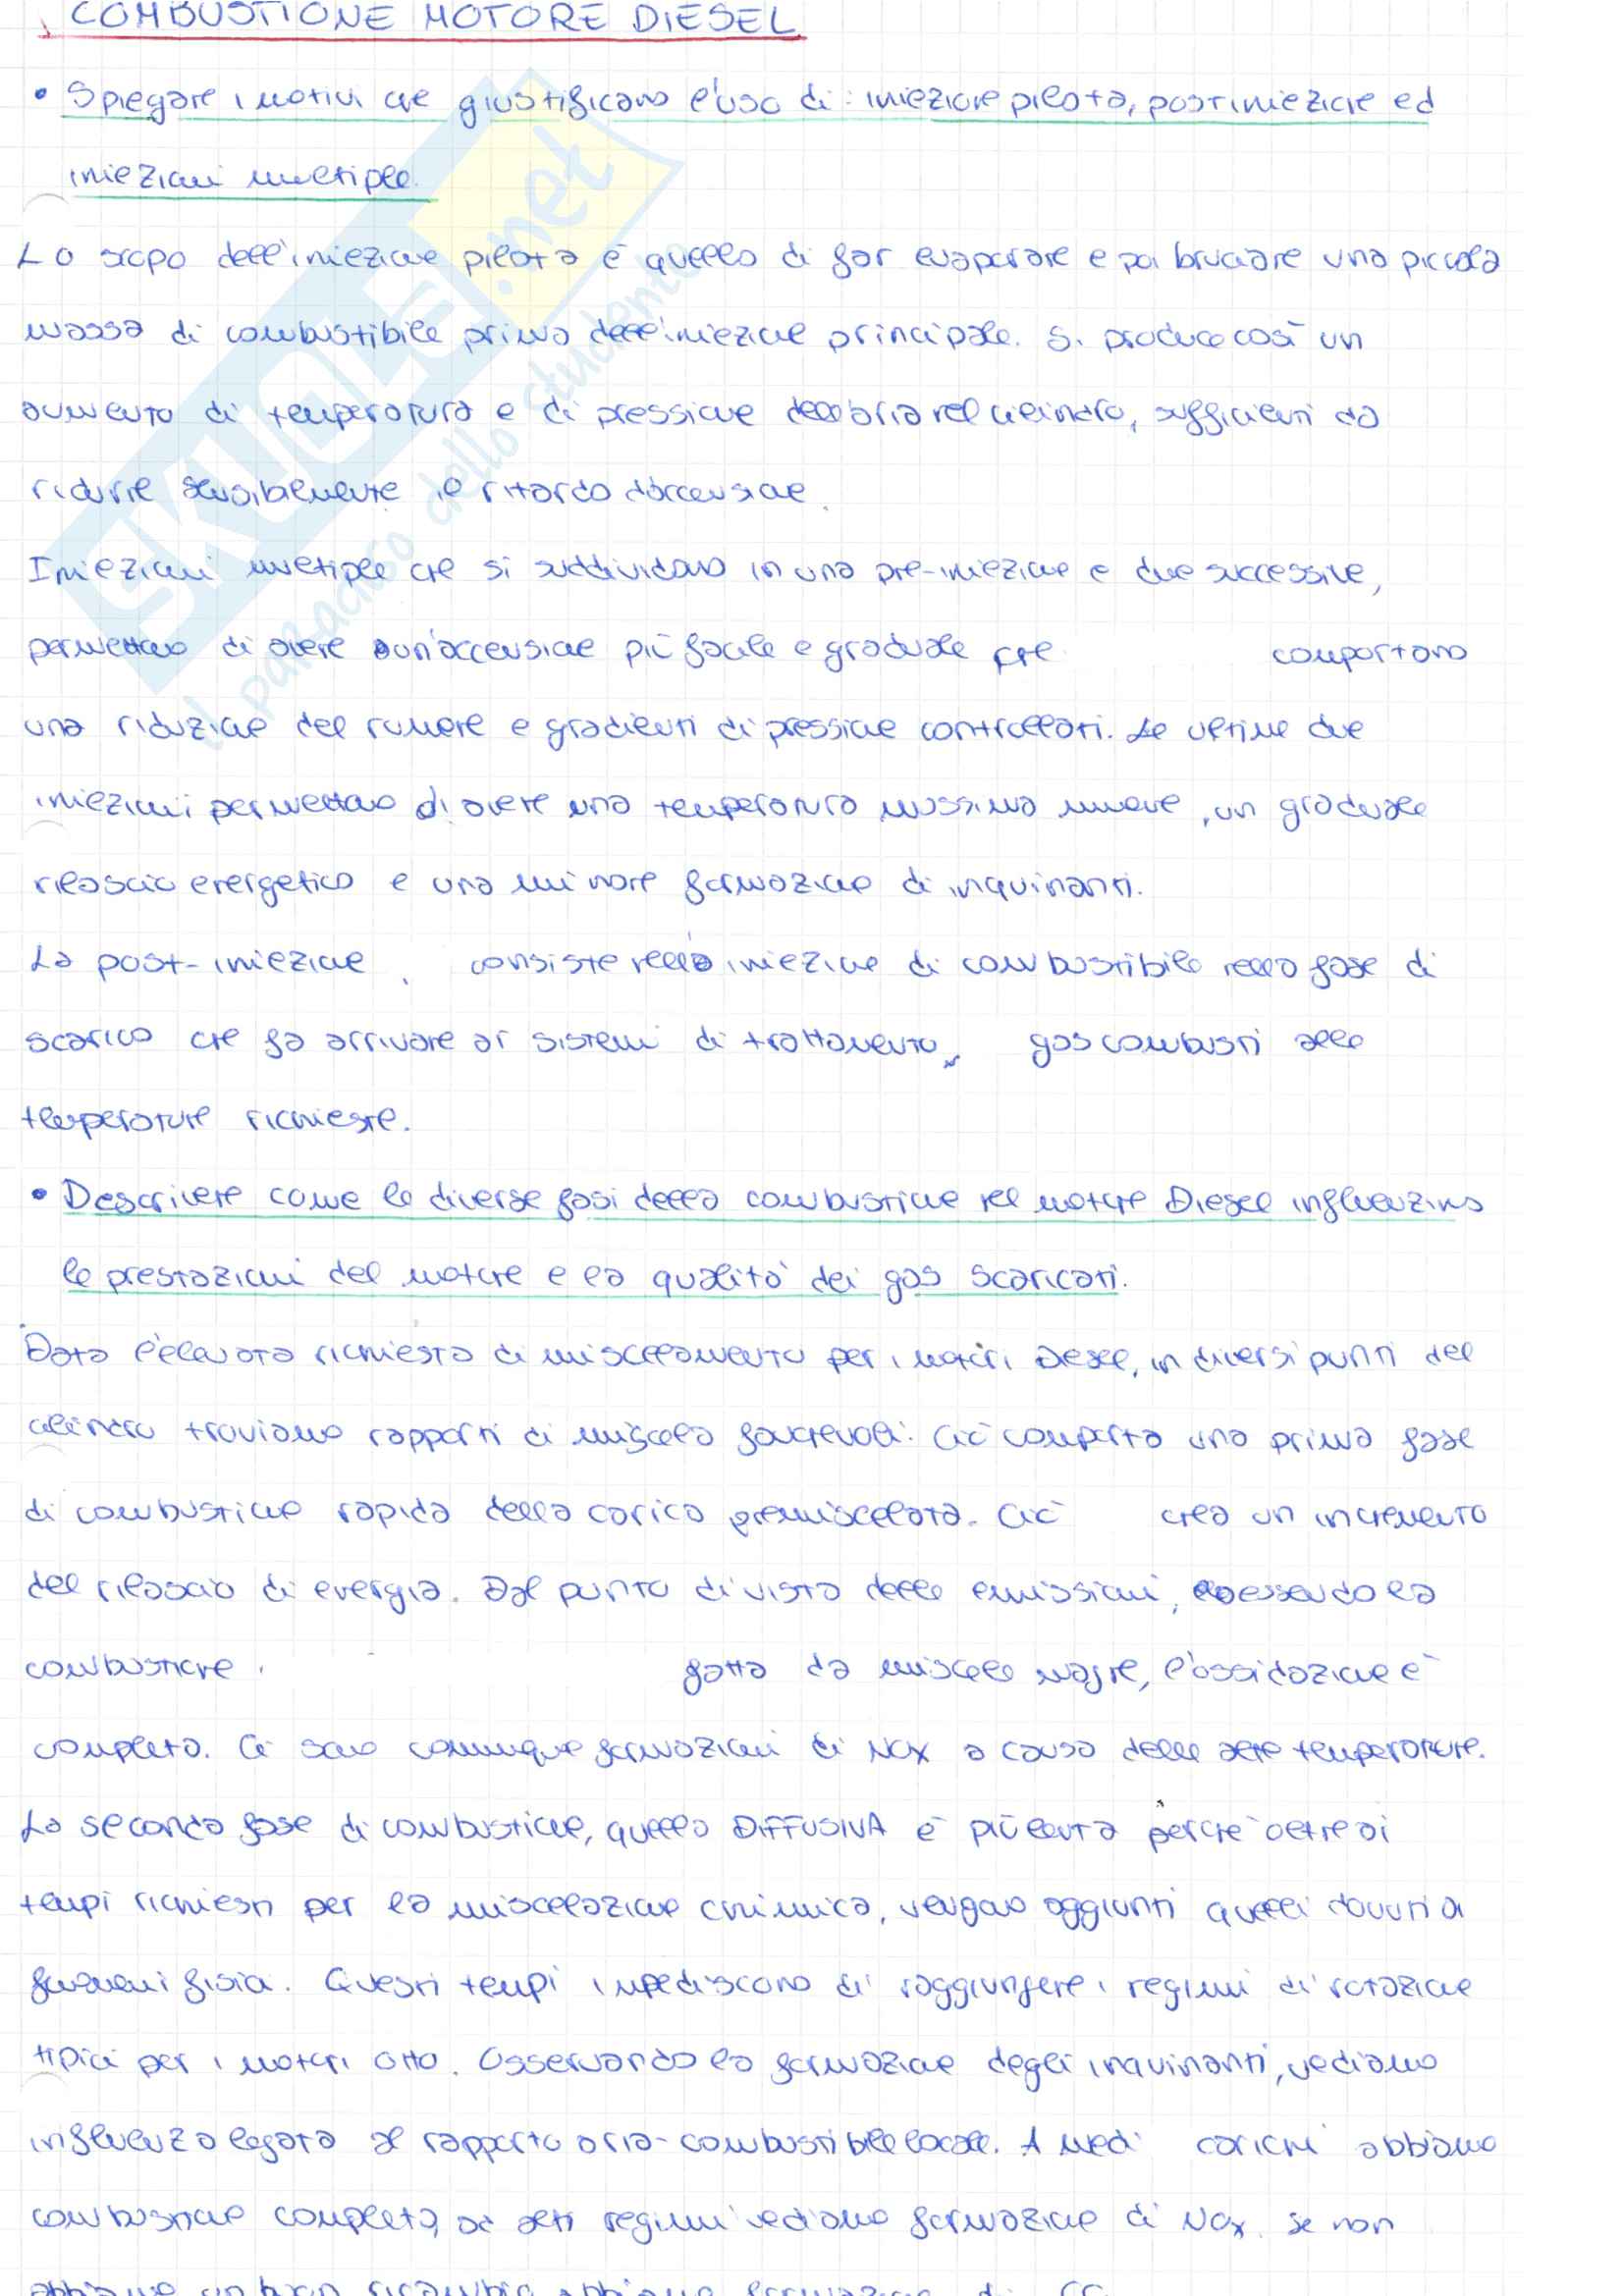 COMBUSTIONE MOTORE DIESEL
• Spiegare i motivi che giustificano l'uso di: iniezione pilota, postiniezione ed
iniezioni multiple.
Lo scopo dell'iniezione pilota è quello di far evaporare e poi bruciare una piccola
massa di combustibile prima dell'iniezione principale. Si produce così un
aumento di temperatura e di pressione dell'aria nel cilindro, sufficienti da
ridurre sensibilmente il ritardo d'accensione.
Iniezioni multiple che si suddividono in una pre-iniezione e due successive,
permettono di avere un'accensione più facile e graduale che comportano
una riduzione del rumore e gradienti di pressione controllati. Le ultime due
iniezioni permettono di avere una temperatura massima minore, un graduale
rilascio energetico e una minore formazione di inquinanti.
La post-iniezione consiste nella iniezione di combustibile nella fase di
scarico che fa arrivare ai sistemi di trattamento, gas combusti alle
temperature richieste.
• Descrivere come le diverse fasi della combustione nel motore Diesel influenzino
le prestazioni del motore e la qualità dei gas scaricati.
Data l'elevata richiesta di miscelamento per i motori Diesel, in diversi punti del
cilindro troviamo rapporti di miscela favorevoli. Ciò comporta una prima fase
di combustione rapida della carica premiscelata. Ciò crea un incremento
del rilascio di energia. Dal punto di vista delle emissioni, essendo la
combustione fatta da miscele magre, l'ossidazione è
completa. Ci sono comunque formazioni di NOx a causa delle alte temperature.
La seconda fase di combustione, quella DIFFUSIVA è più lenta perchè oltre ai
tempi richiesti per la miscelazione chimica, vengono aggiunti quelli dovuti a
fenomeni fisici. Questi tempi impediscono di raggiungere i regimi di rotazione
tipici per i motori Otto. Osservando la formazione degli inquinanti, vediamo
influenza legata al rapporto aria-combustibile locale. A medi carichi abbiamo
combustione completa, ad alti regimi vediamo formazione di NOx. Se non
abbiamo un buon ricambio abbiamo formazione di
SKUOLA.net
il paradiso dello studente